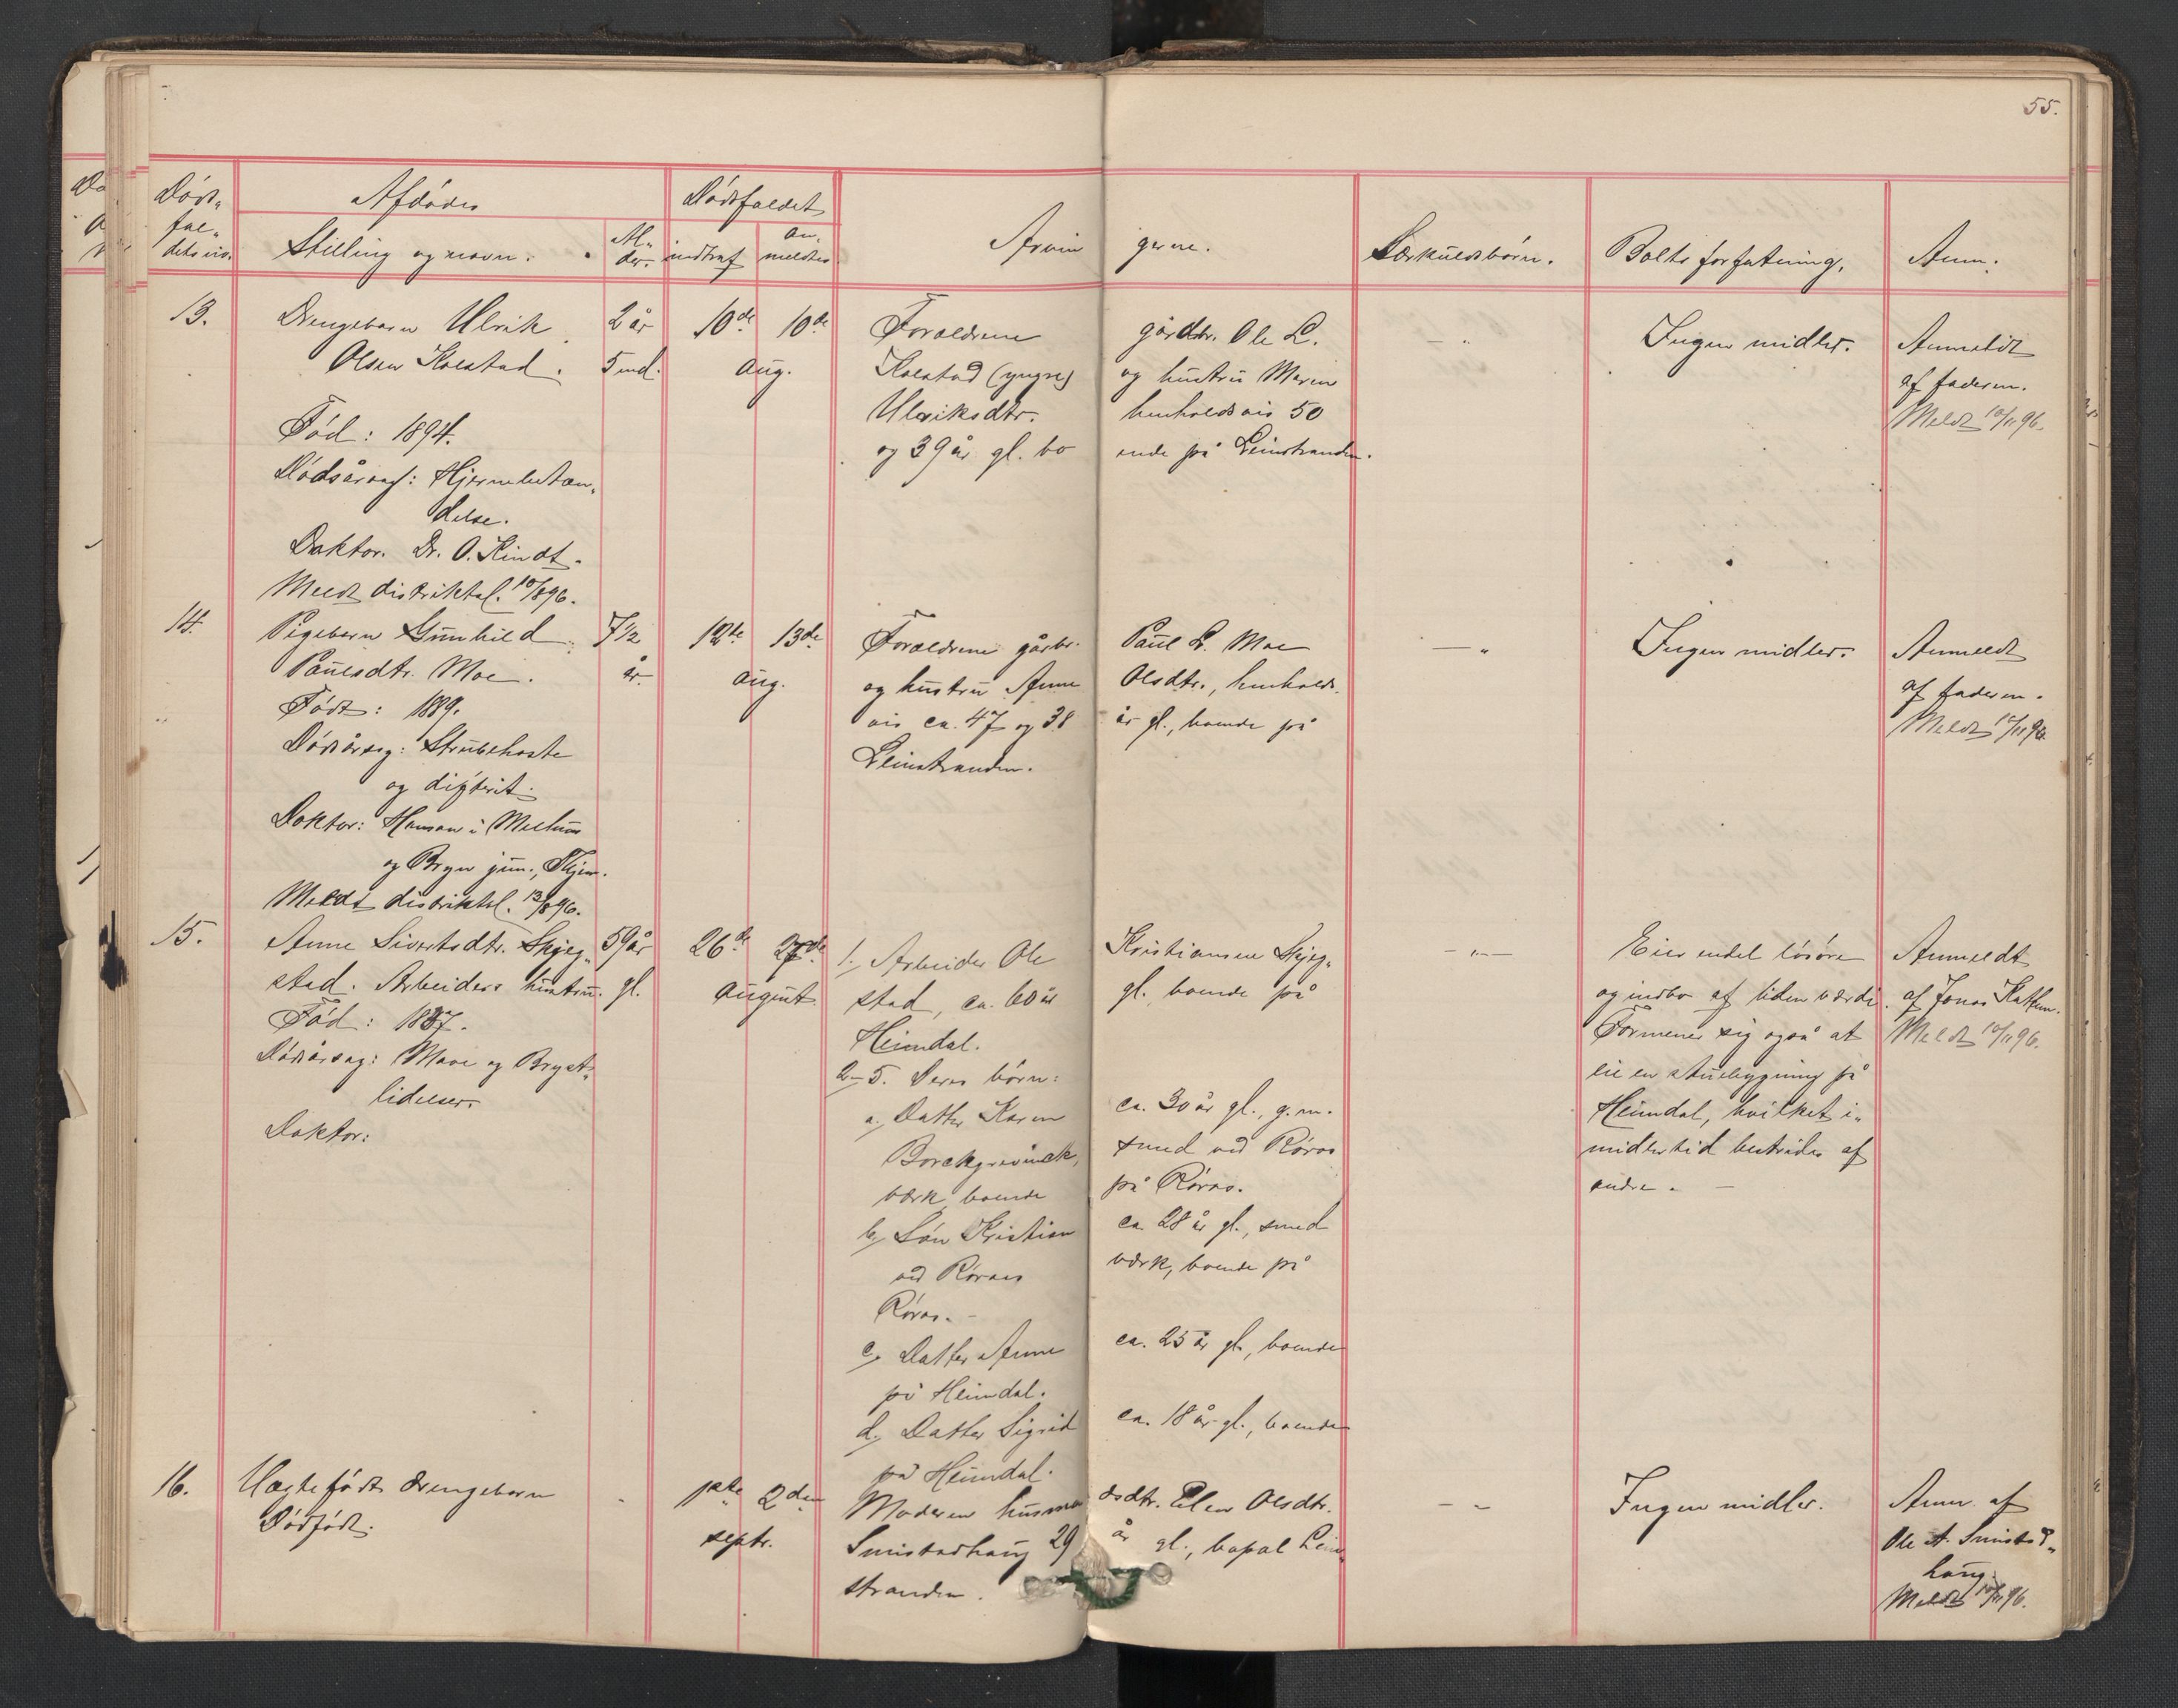 55.
Døds-
fal-
dets no.
Afdødes
Stilling og navn.
Al-
der.
Dødsfaldet
indtraf
an-
meldtes
Arvin gerne.
Særkuldsbørn.
Boets forfatning.
Anm.
13.
Drengebarn Ulrik
Olsen Kolstad.
Fød: 1894.
Dødsårsag: Hjernebetæn-
delse.
Doktor. Dr. O. Kindt.
Meldt distriktsl. 10/8 96.
2 år
5 md.
10de 10de
Aug.
Forældrene gårdbr. Ole L.
Kolstad (yngre) og hustru Maren
Ulriksdtr. henholdsvis 50
og 39 år gl. bo ende på Leinstranden.
— „
Ingen midler.
Anmeldt
af faderen.
Meldt 10/11 96.
14.
Pigebarn Gunhild
Paulsdtr. Moe.
Født: 1889.
Dødsårsag: Strubehoste
og difterit.
Doktor: Hansen i Melhus
og Bryn jun., Thjem.
Meldt distriktsl. 13/8 96.
7 1/2
år
12te 13de
Aug.
Forældrene gårbr. Paul L. Moe
og hustru Anne Olsdtr., henholds-
vis ca. 47 og 38 år gl., boende på
Leinstranden.
— „
Ingen midler.
Anmeldt
af faderen.
Meldt 10/11 96
15.
Anne Sivertsdtr. Skjeg-
stad. Arbeiders hustru.
Fød: 1837.
Dødsårsag: Mave og Bryst-
lidelser.
Doktor:
59 år
gl.
26de 27de
August
1. Arbeider Ole Kristiansen Skjeg-
stad, ca. 60 år gl., boende på
Heimdal.
2–5. Deres børn:
a. Datter Karen ca. 30 år gl., g. m.
Borchgrevinck, smed ved Røros
værk, boende på Røros.
b. Søn Kristian ca. 28 år gl., smed
ved Røraas værk, boende på
Røros. –
c. Datter Anne ca. 25 år gl., boende
på Heimdal.
d. Datter Sigrid ca. 18 år gl., boende
på Heimdal.
— „ —
Eier endel løsøre
og indbo af liden værdi.
Formener sig også at
eie en stuebygning på
Heimdal, hvilket i-
midlertid bestrides af
andre. –
Anmeldt
af Jonas
Meldt 10/11 96.
16.
Uægtefødt drengebarn
Dødfødt.
1ste 2den
septr.
Moderen husma dsdtr. Ellen Olsdtr.
Smistadhaug 29 år gl., bopæl Lein-
stranden.
— „
Ingen midler.
Anm. af
Ole A. Smistad-
haug.
Meldt 10/11 96.